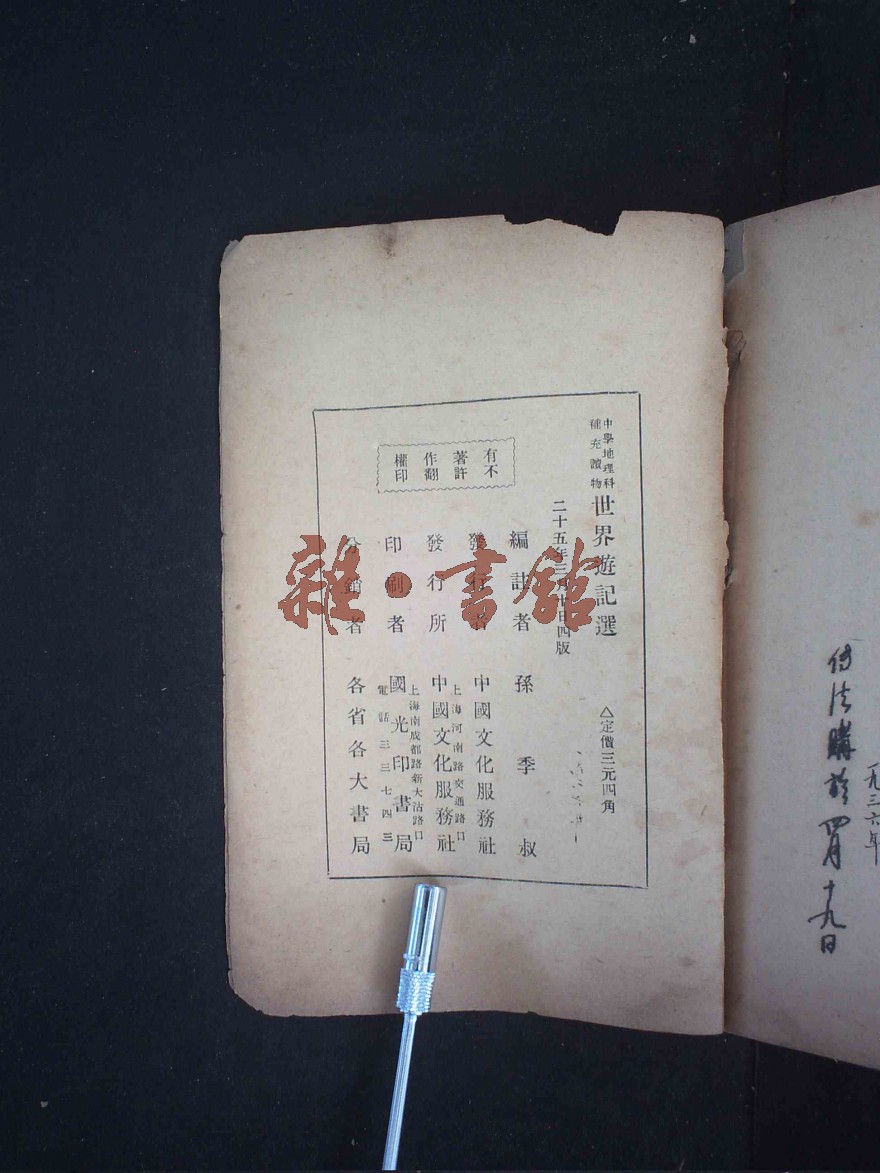 一九三六年
購於四月十九日
中學地理科
補充讀物
世界遊記選
△定價三元四角
二十五年三月十日四版
編註者 孫季叔
發行者 中國文化服務社
上海河南路交通路口
發行所 中國文化服務社
上海南成都路新大沽路口
印刷者 國光印書局
電話三三七四三
分銷者 各省各大書局
有著作權
不許翻印
雜·書館